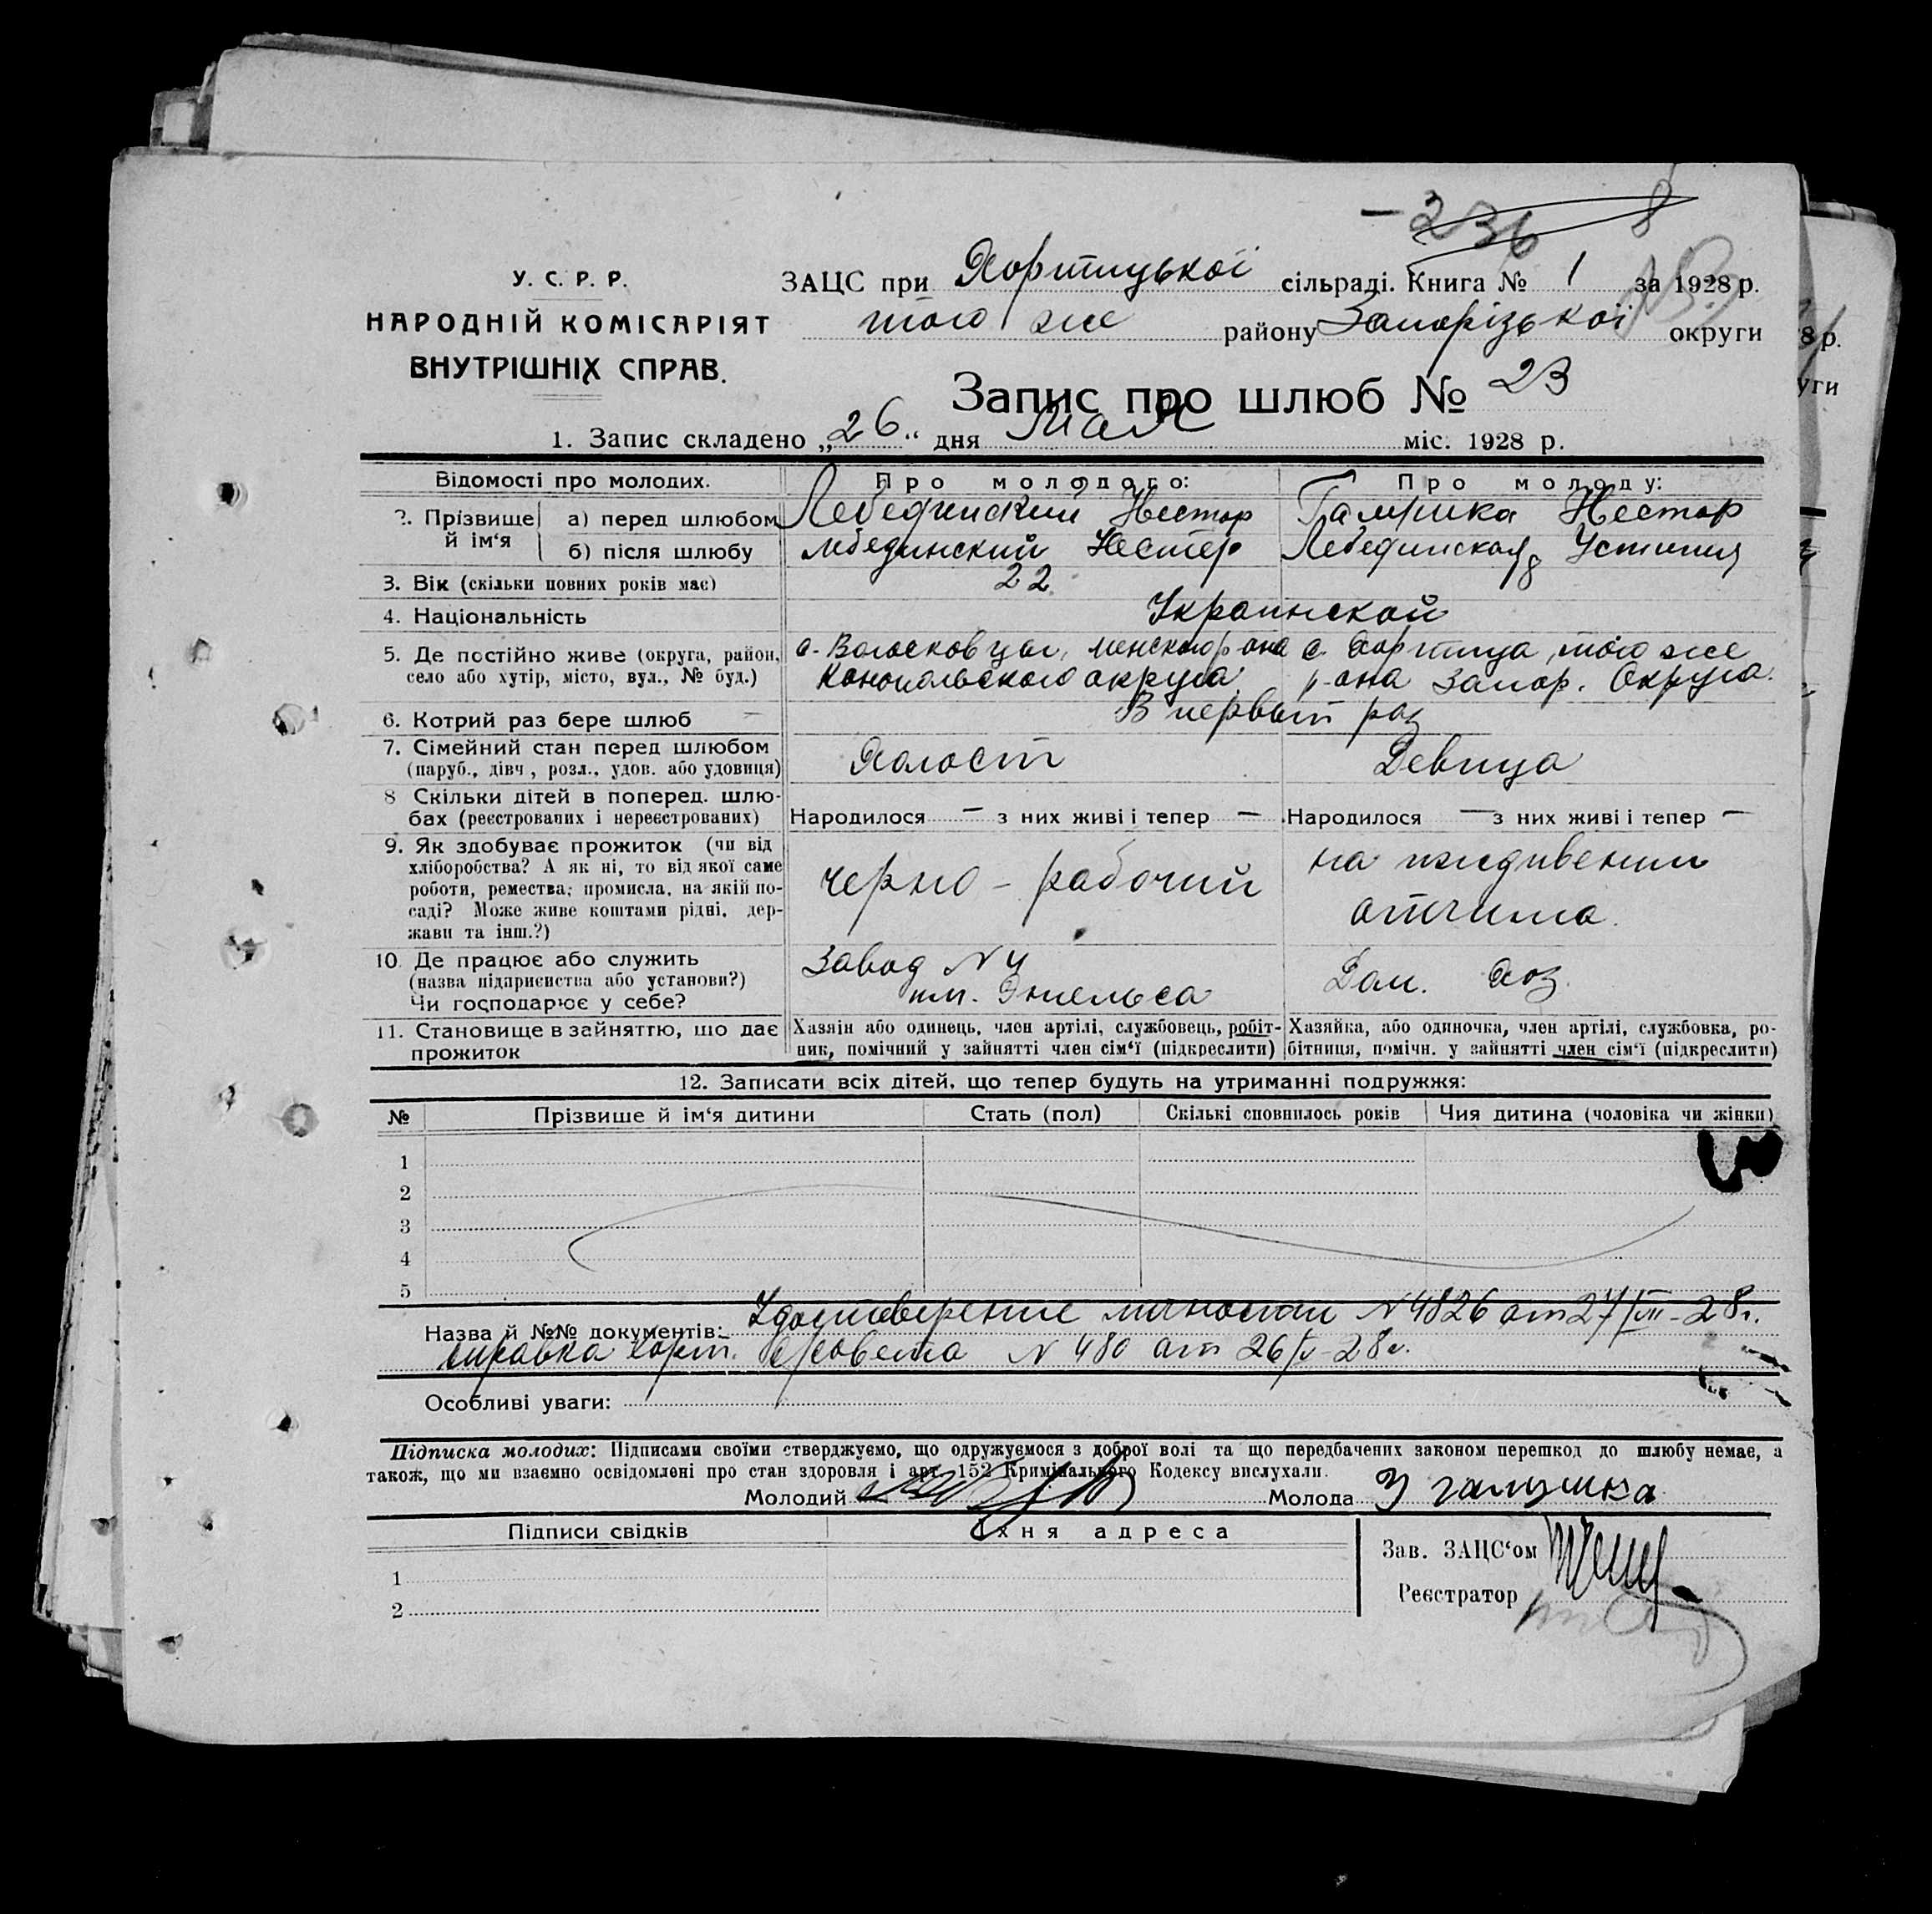 - 236 8
У. С. Р. Р.
НАРОДНІЙ КОМІСАРІЯТ
ВНУТРІШНІХ СПРАВ.
ЗАЦС при Хортицької сільраді. Книга № 1 за 1928 р.
того же району Запорізької округи
8 р.
уги
Запис про шлюб № 23
1. Запис складено „26“ дня Мая міс. 1928 р.
Відомості про молодих. Про молодого: Про молоду:
2. Прізвище й ім‘я а) перед шлюбом Лебединский Нестор Нестор
б) після шлюбу Лебединский Нестер Лебединская Устиния
3. Вік (скільки повних років має) 22
4. Національність Украинской
5. Де постійно живе (округа, район, с. Волосковцы, Менского р-она с. Хортица, того же
село або хутір, місто, вул., № буд.) Конотопского округа р-она Запор. Округа.
6. Котрий раз бере шлюб В первый раз
7. Сімейний стан перед шлюбом Холост Девица
(паруб., дівч., розл., удов. або удовиця)
8 Скільки дітей в поперед. шлю-
бах (реєстрованих і нереєстрованих) Народилося — з них живі і тепер — Народилося — з них живі і тепер —
9. Як здобуває прожиток (чи від
хліборобства? А як ні, то від якої саме
роботи, ремества, промисла, на якій по-
саді? Може живе коштами рідні, дер-
жави та інш.?)
черно - рабочий
на иждивении
отчима.
10. Де працює або служить
(назва підприємства або установи?)
Чи господарює у себе?
Завод N 4
им. Энгельса
Дом. Хоз.
11. Становище в зайняттю, що дає
прожиток
Хазяін або одинець, член артілі, службовець, робіт-
ник, помічний у зайнятті член сім‘ї (підкреслити)
Хазяйка, або одиночка, член артілі, службовка, ро-
бітниця, помічн. у зайнятті член сім‘ї (підкреслити)
12. Записати всіх дітей, що тепер будуть на утриманні подружжя:
№ Прізвише й ім‘я дитини Стать (пол) Скількі сповнилось років Чия дитина (чоловіка чи жінки)
1
2
3
4
5
Назва й №№ документів: Удостоверение личности N 4826 от 27/VIII-28г.
справка Хорт. с/совета N 480 от 26/V-28г.
Особливі уваги:
Підписка молодих: Підписами своїми стверджуємо, що одружуємося з доброї волі та що передбачених законом перешкод до шлюбу немає, а
також, що ми взаємно освідомлені про стан здоровля і арт. 152 Кримінального Кодексу вислухали.
Молодий Молода У галушка
Підписи свідків Їхня адреса
1
2
Зав. ЗАЦС‘ом
Реєстратор